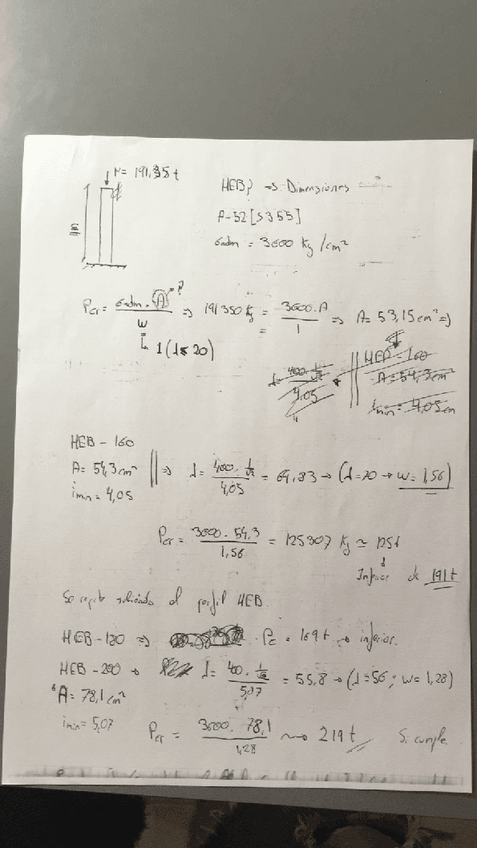 N = 191,35 t
HEB? => Dimensiones
A-52 [S355]
σadm = 3600 kg/cm²
Pcr = σadm · A / w => 191350 kg = 3600·A / 1 => A = 53,15 cm² =>
? 
1 (λ≤20)
HEB-160
A = 54,3 cm²
imin = 4,05 cm
HEB-160
A = 54,3 cm² || => λ = 400 · / 4,05 = 64,83 → (λ=70 → w = 1,56)
imin = 4,05
Pcr = 3600 · 54,3 / 1,56 = 125307 kg ≃ 125t
Inferior de 191t
Se repite subiendo el perfil HEB.
HEB-180 => Pc = 169t → inferior.
HEB-200 → λ = 400 · / 5,07 = 55,8 → (λ=56; w=1,28)
A = 78,1 cm²
imin = 5,07
Pcr = 3600 · 78,1 / 1,28 ~ 219t Si cumple